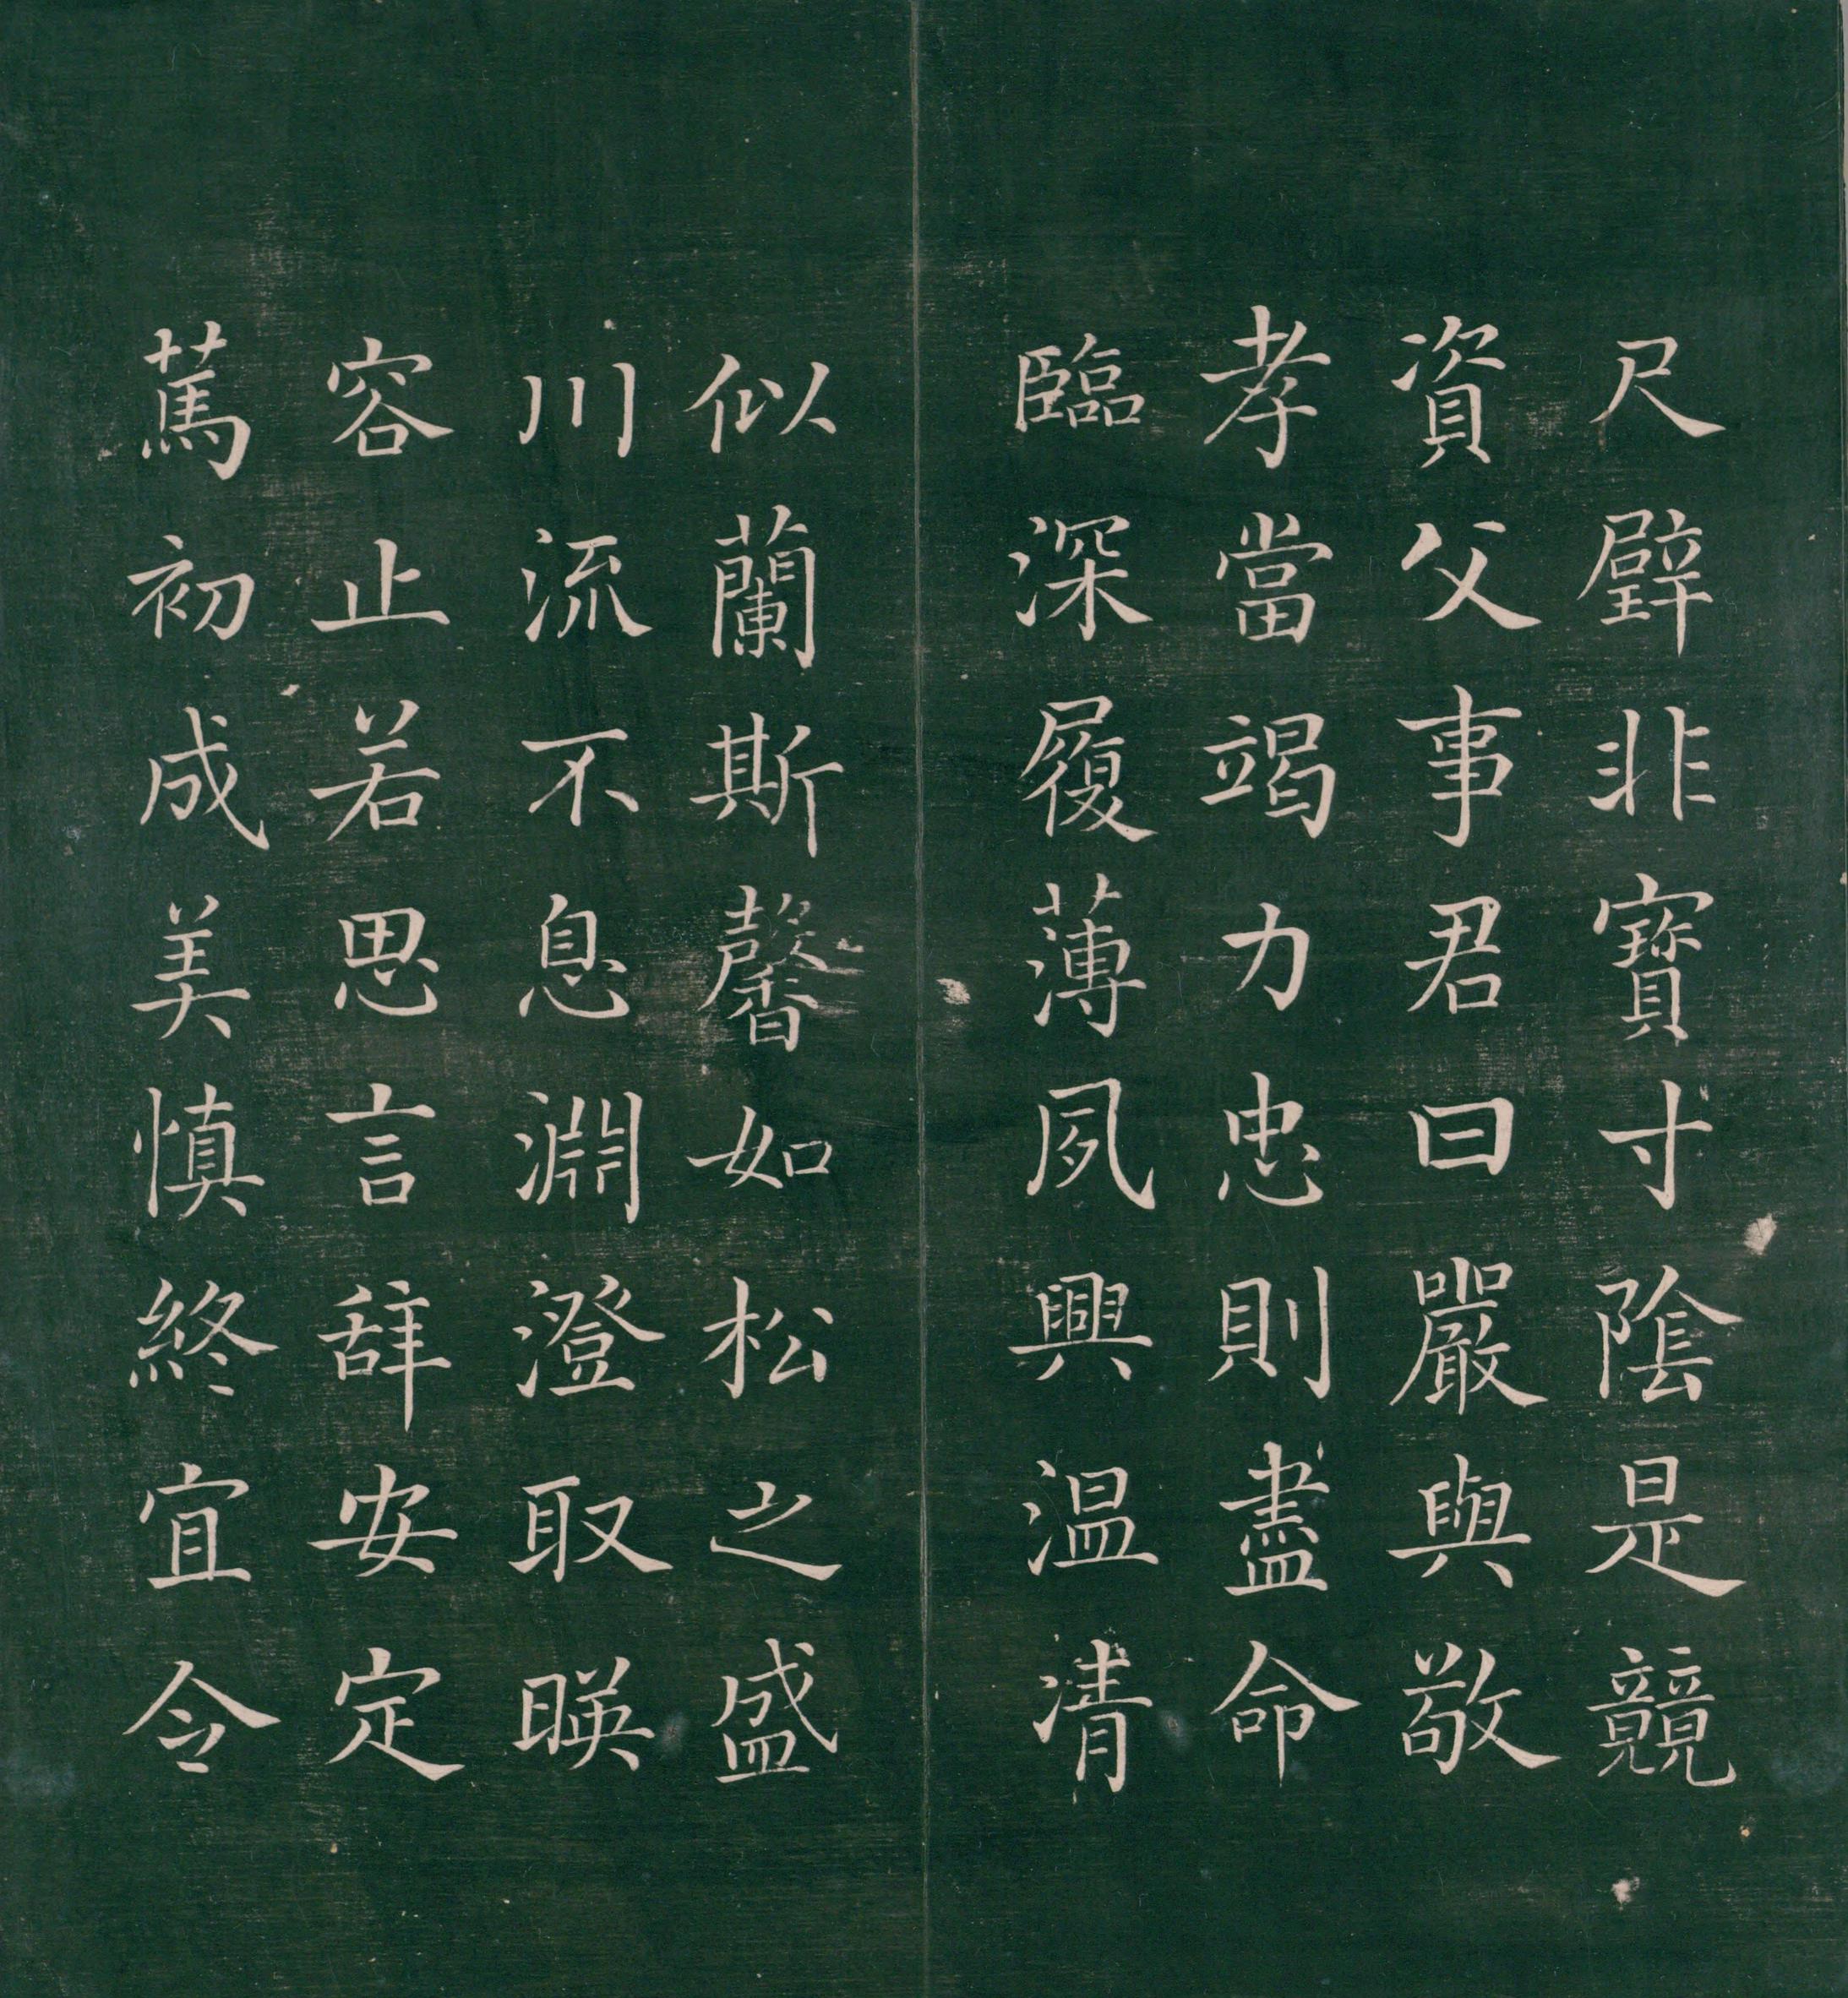 尺璧非寶寸陰是競
資父事君曰嚴與敬
孝當竭力忠則盡命
臨深履薄夙興温凊
似蘭斯馨如松之盛
川流不息淵澄取暎
容止若思言辝安定
篤初成美慎終宜令